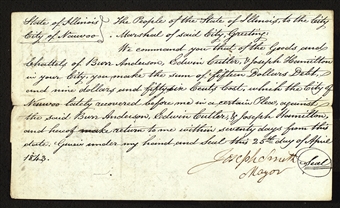 State of Illinois } The People of the State of Illinois, to the City
City of Nauvoo } Marshal of said City, Greeting.
We command you that of the Goods and
Chattels of Burr Anderson, Edwin Cutler, & Joseph Hamilton
in your City, you make the sum of fifteen Dollars Debt,
and nine dollars and fifty six Cents Cost, which the City of
Nauvoo lately recovered before me in a certain Plea, against
the said Burr Anderson, Edwin Cutler, & Joseph Hamilton,
and hereof make return to me within seventy days from this
date. Given under my hand and Seal this 25th day of April
1843.
Joseph Smith Seal
Mayor